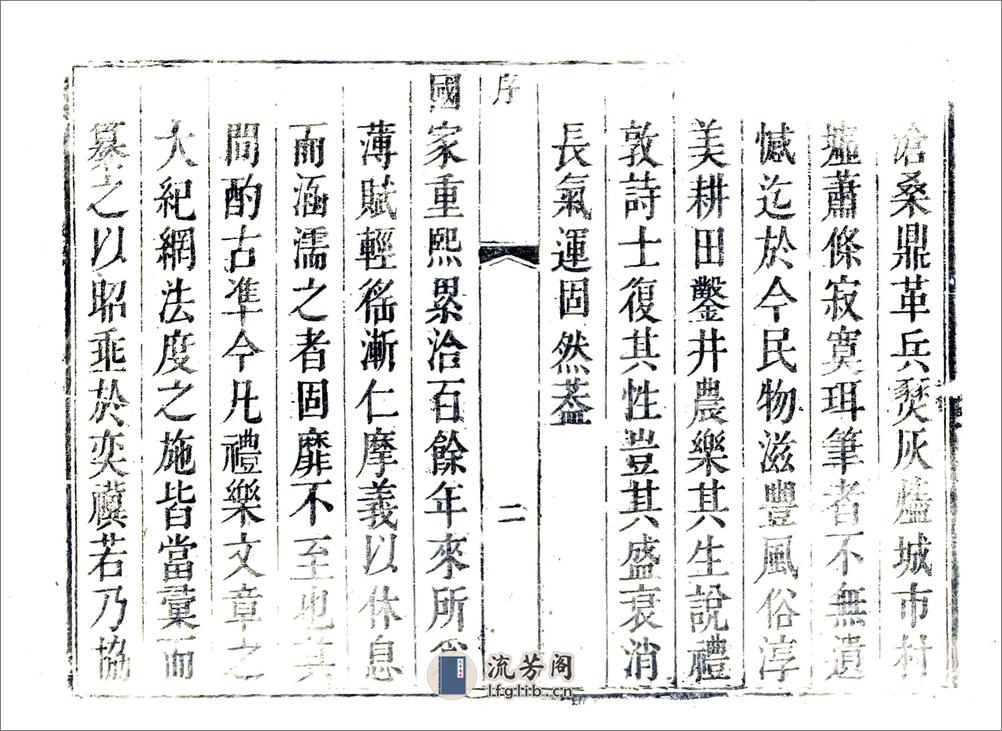 滄桑鼎革兵燹灰燼城市村
墟蕭條寂寞珥筆者不無遺
憾迄於今民物滋豐風俗淳
美耕田鑿井農樂其生說禮
敦詩士復其性豈其盛衰消
長氣運固然葢
序
二
國家重熙累洽百餘年來所
薄賦輕徭漸仁摩義以休息
而涵濡之者固靡不至也其
間酌古准今凡禮樂文章之
大紀網法度之施皆當彙而
纂之以昭垂於奕禩若乃協
流芳阁
lfglib.cn